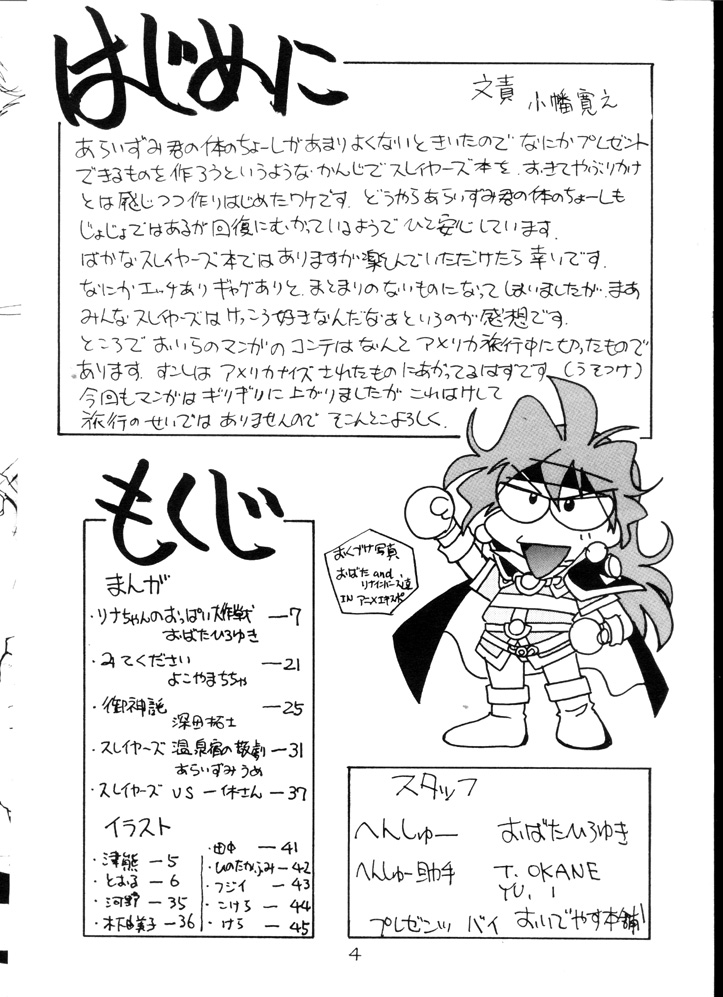 はじめに
文責
小幡寛え
あらいずみ君の体のちょーしがあまりよくないときいたので なにかプレゼント
できるものを作ろうというような かんじでスレイヤーズ本を おきてやぶりかけ
とは感じつつ作りはじめたワケです. どうやらあらいずみ君の体のちょーしも
じょじょではあるが回復にむかっているようで ひと安心しています.
ばかなスレイヤーズ本ではありますが楽しんでいただけたら幸いです.
なにかエッチありギャグありと、まとまりのないものになってしまいましたが、まあ
みんなスレイヤーズはけっこう好きなんだなぁというのが感想です.
ところでおいらのマンガのコンテはなんとアメリカ旅行中に切ったもので
あります. すこしはアメリカナイズされたものにあがってるはずです (うそつけ)
今回もマンガはギリギリに上がりましたが これはけして
旅行のせいではありませんので そこんとこよろしく.
もくじ
まんが
・リナちゃんのおっぱい大作戦 ―7
おばたひろゆき
・みてください ―21
よこやまちちゃ
・御神託 ―25
深田拓士
・スレイヤーズ 温泉宿の 劇 ―31
あらいずみうめ
・スレイヤーズ VS 一休さん ―37
イラスト
・津熊 ―5
・とおる ―6
・河野 ―35
・木下 美子 ―36
・田中 ―41
・ひのたかふみ ―42
・フジイ ―43
・こけら ―44
・けら ―45
おくづけ写真
おばた and
リナインバース達
IN アニメエキスポ
スタッフ
へんしゅー おばたひろゆき
へんしゅー助手 T. OKANE
YU. I
プレゼンツ バイ おいでやす本舗
4